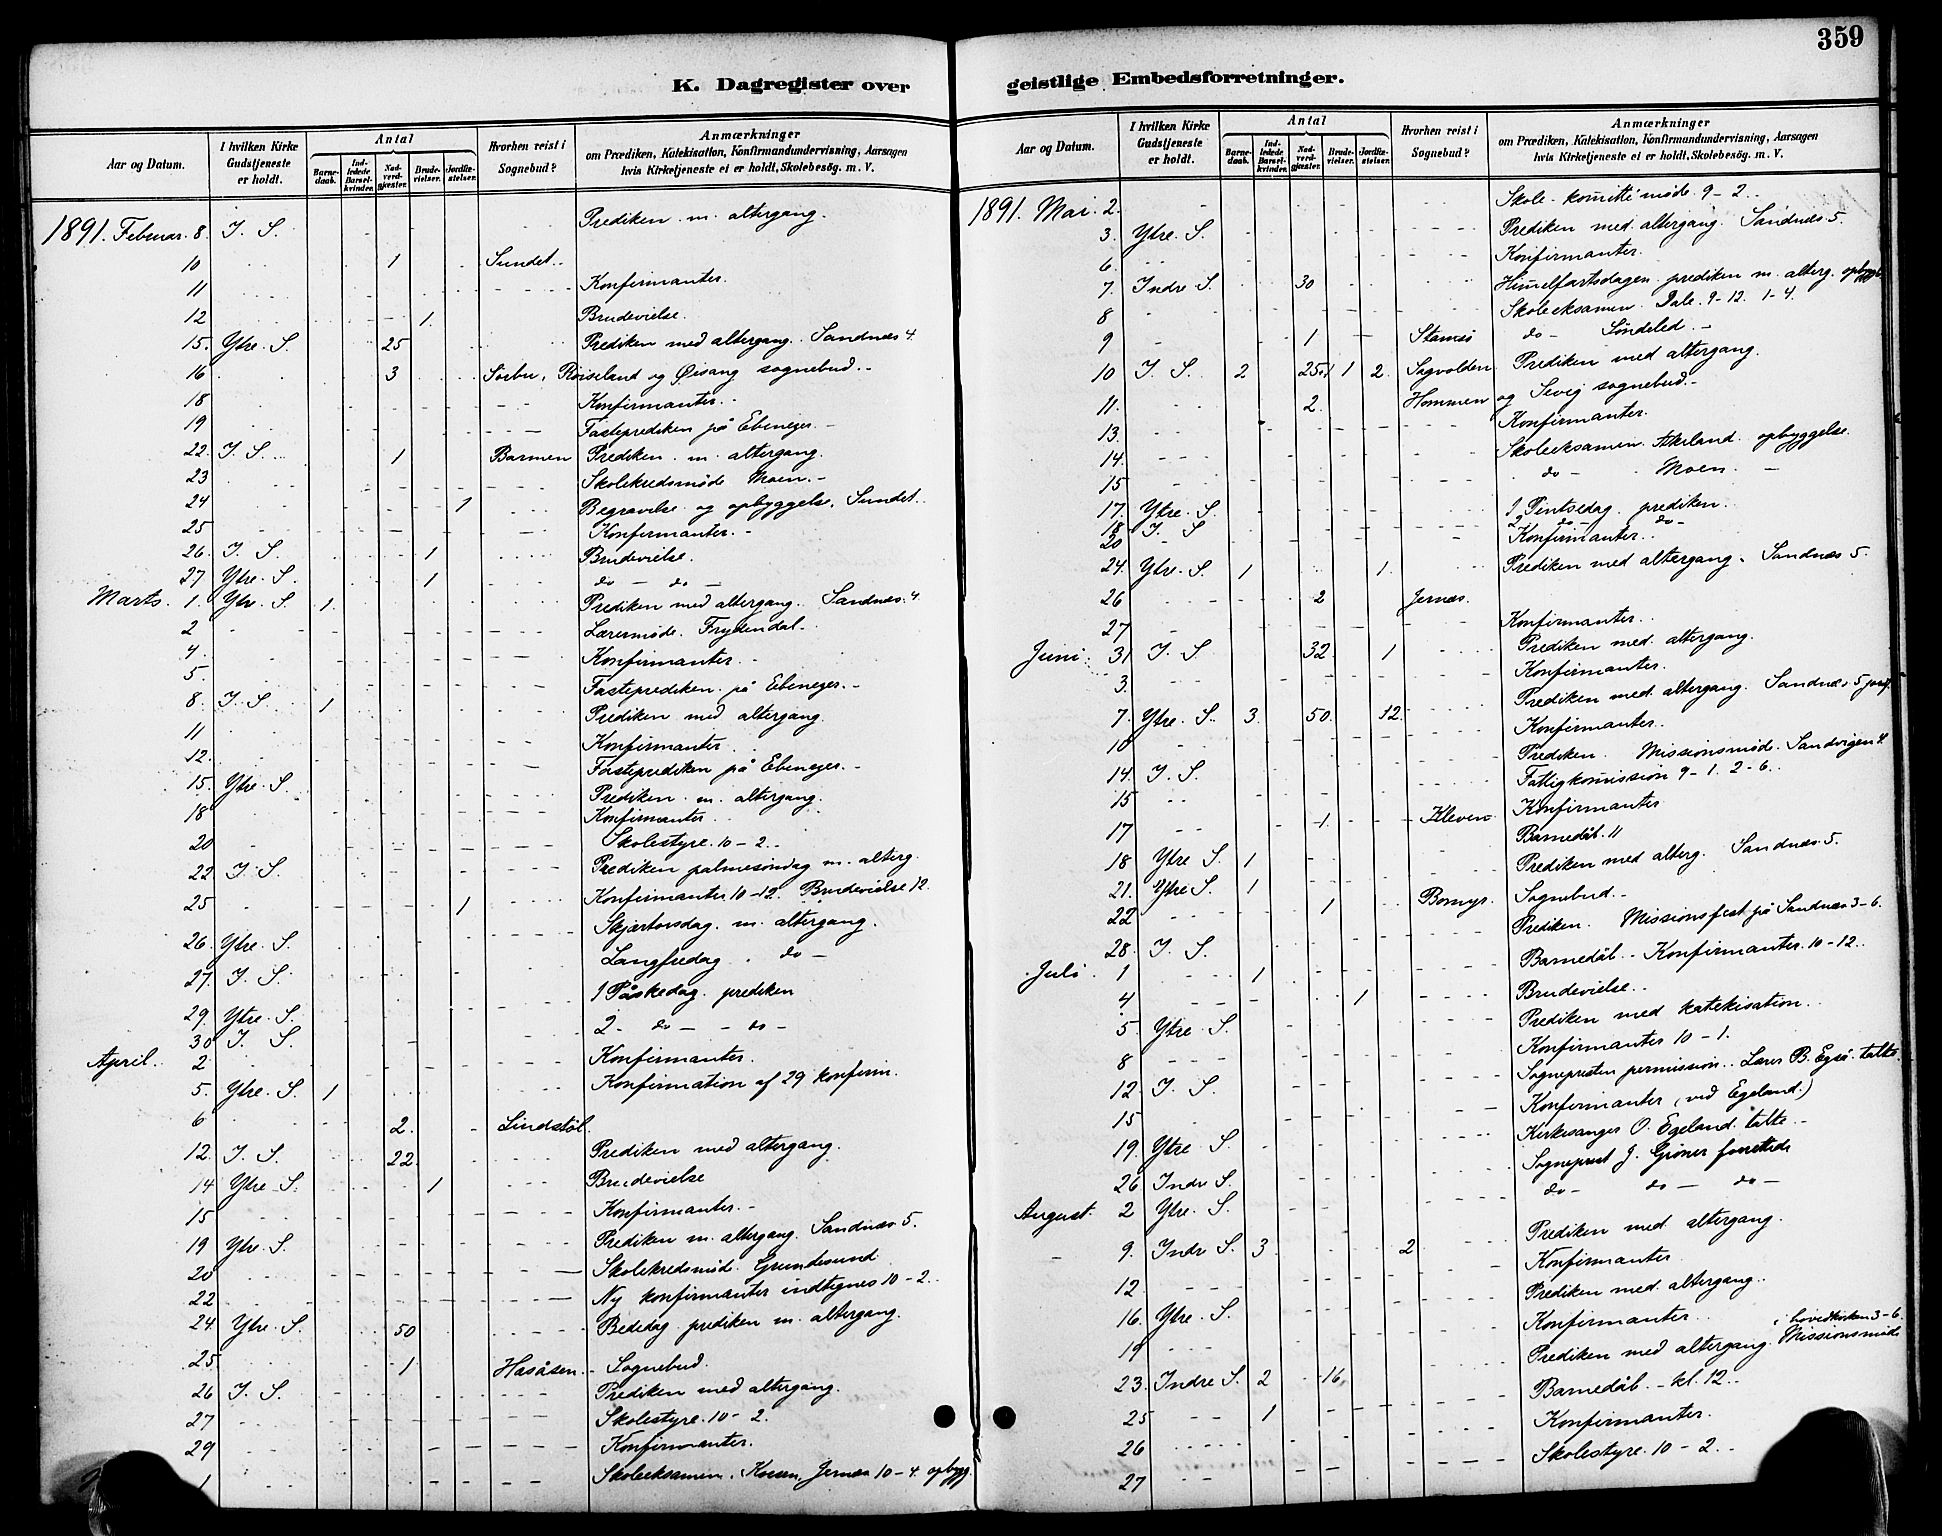 359
K. Dagregister over geistlige Embedsforretninger.
Aar og Datum. | I hvilken Kirke Gudstjeneste er holdt. | Antal | Barne-daab. | Ind-ledede Barsel-kvinder. | Nad-verd-gjester. | Brude-vielser. | Jordfæ-stelser. | Hvorhen reist i Sognebud? | Anmærkninger om Prædiken, Katekisation, Konfirmandundervisning, Aarsagen hvis Kirketjeneste ei er holdt, Skolebesög. m. V.
1891. Februar. 8. I. S. Prediken m. altergang.
10 1 Sundet.
11 Konfirmanter.
12 1 Brudevielse.
15. Ytre. S. 25 Prediken med altergang. Sandnæs 4.
16 3 Sörbu, Röiseland og Øisang sognebud.
18 Konfirmanter.
19 Fasteprediken på Ebenezer.
22. I. S. 1 Barmen Prediken m. altergang.
23 Skolekredsmöde Moen.
24 1 Begravelse og opbyggelse, Sundet.
25 Konfirmanter.
26. I. S. 1 Brudevielse.
27 Ytre. S. 1 do - do -
Marts. 1. Ytr. S. 1. Prediken med altergang. Sandnæs. 4.
2 Lærermöde. Frydendal.
4. Konfirmanter.
5. Fasteprediken på Ebenezer.
8. I. S. 1 Prediken med altergang.
11 Konfirmanter.
12. Fasteprediken på Ebenezer.
15. Ytre. S. Prediken m. altergang.
18 Konfirmanter.
20 Skolestyre. 10-2.
22 I. S. Prediken palmesöndag m. alterg.
25 1 Konfirmanter 10-12. Brudevielse 12.
26. Ytre. S. Skjærtorsdag. m. altergang.
27. I. S. Langfredag do -
29. Ytre. S. 1 Påskedag. prediken
30 I. S. 2 - do - - do -
April. 2 Konfirmanter.
5. Ytre. S. 1 Konfirmation af 29 konfirm.
6 2. Lindstöl.
12. I. S. 22 Prediken med altergang.
14 Ytre S. 1 Brudevielse
15 Konfirmanter.
19 Ytre. S. Prediken m. altergang. Sandnæs 5.
20 Skolekredsmöde. Grundesund
22 Ny konfirmanter indtegnes 10-2.
24. Ytre. S. 50 Bededag. prediken m. altergang.
25 1 Hasåsen. Sognebud.
26 I. S. Prediken med altergang.
27 Skolestyre. 10-2.
29 Konfirmanter.
1 Skoleeksamen. Jernæs 10-4. opbygg.
Aar og Datum. | I hvilken Kirke Gudstjeneste er holdt. | Antal | Barne-daab. | Ind-ledede Barsel-kvinder. | Nad-verd-gjester. | Brude-vielser. | Jordfæ-stelser. | Hvorhen reist i Sognebud? | Anmærkninger om Prædiken, Katekisation, Konfirmandundervisning, Aarsagen hvis Kirketjeneste ei er holdt, Skolebesög. m. V.
1891. Mai. 2. Skole-komitemöde. 9-2.
3. Ytre. S. Prediken med altergang. Sandnæs. 5.
6. Konfirmanter.
7. Indre S. 30 Himelfartsdagen prediken m. alterg. opbygg.
8 Skoleeksamen Dale. 9-12. 1-4.
9 1 Stamsö do - Söndeled.
10 I. S. 2 25 1 2. Sagvolden Prediken med altergang.
11. 2. Hommen og Sevig sognebud.
13. Konfirmanter.
14. Skoleeksamen. Akeland. opbyggelse.
15 do - Moen. -
17. Ytre. S. 1 Pintsedag. prediken.
18 I. S 2 do - do -
20 Konfirmanter.
24. Ytre. S. 1 1. Prediken med altergang. Sandnæs 5.
26 2 Jernæs.
27 Konfirmanter.
Juni. 31 I. S 32. 1 Prediken med. altergang.
3. Konfirmanter.
7. Ytre. S. 3. 50. 12. Prediken med. altergang. Sandnæs 5
10 Konfirmanter.
14. I. S. Prediken. Missionsmöde. Sandvigen 4.
15 Fattigkomission 9-1. 2-6.
17 1. Kleven. Konfirmanter
18 Ytre S. 1 Barnedåb. 11
21. Ytre S. 1 Prediken med alterg. Sandnæs. 5.
22 1 Bomyr. Sognebud.
28. I. S. Prediken. Missionsfest på Sandnæs 3-6.
Juli. 1 1 Barnedåb. - Konfirmanter. 10-12.
4 1 Brudevielse.
5. Ytre S. Prediken med katekisation.
8 Konfirmanter 10-1.
12 I. S. Sognepresten permission. Lærer B. talte.
15 Konfirmanter (ved Egeland.)
19. Ytre S. Kirkesanger O. Egeland. talte.
26 Indre S. Sogneprest J. Gröner forrettede
August. 2 Ytre. S. do - do - do -
9. Indre S. 3 2 Prediken med. altergang.
12 Konfirmanter
16. Ytre. S. Prediken med. altergang.
19 Konfirmanter.
23. Indre S. 2 16 Prediken med altergang. Missionsmöde i hovedkirken 3-6.
25 1 Barnedåb. - kl. 12.
26 Konfirmanter.
27 Skolestyre. 10-2.